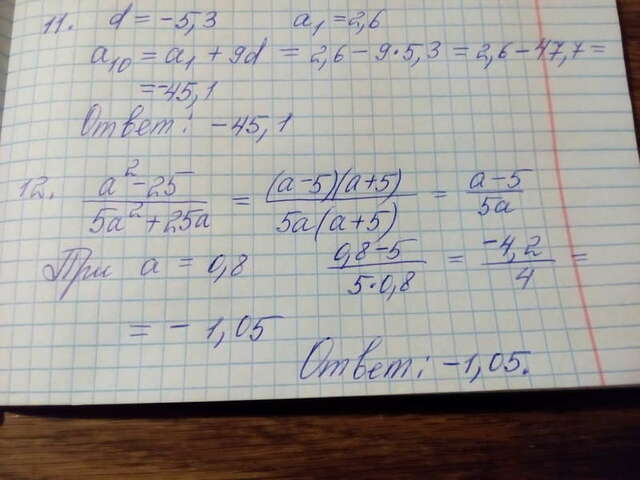 11. d = -5,3 a₁ = 2,6
a₁₀ = a₁ + 9d = 2,6 - 9·5,3 = 2,6 - 47,7 =
= -45,1
Ответ: -45,1
12. (a² - 25)/(5a² + 25a) = ((a-5)(a+5))/(5a(a+5)) = (a-5)/(5a)
При a = 0,8 (0,8-5)/(5·0,8) = (-4,2)/4 =
= -1,05
Ответ: -1,05.